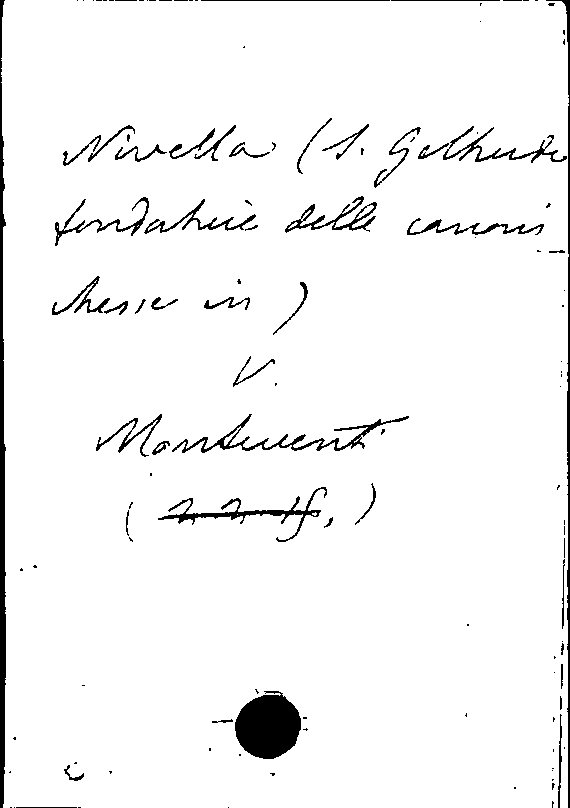 Nivella (S. Geltrude
fondatrice delle canoni
chesse in)
V.
Montiventi